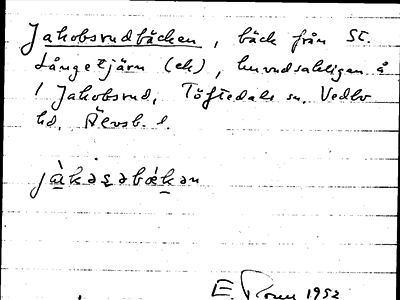 Jakobsrudbäcken, bäck från St.
Långetjärn (ek), huvudsakligen å
1 Jakobsrud, Töftedals sn. Vedbo
hd. Älvsb. l.
jàkəsəbǽkən
E. 1952